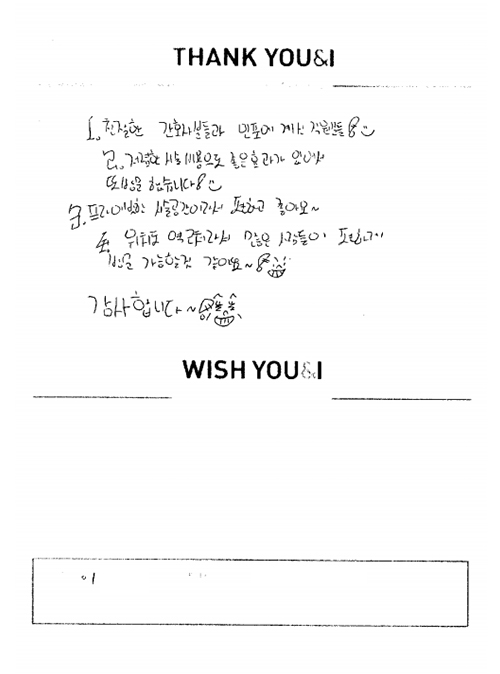 THANK YOU&I
1. 친절한 간호사분들과 인포에 계신 직원분들
2. 저렴한 시술비용으로 좋은효과가 있어서
또방문을 했습니다
3. 프라이빗한 시술공간이라서 편하고 좋아요~
4. 위치도 역근처라서 많은 사람들이 편하게
방문 가능할것 같아요~
감사합니다~
WISH YOU&I
이